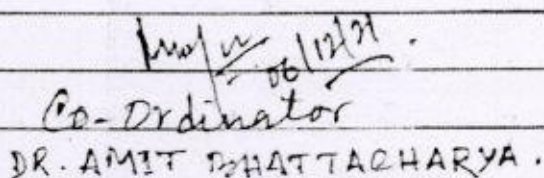 06/12/21.
Co-Ordinator
DR. AMIT BHATTACHARYA.